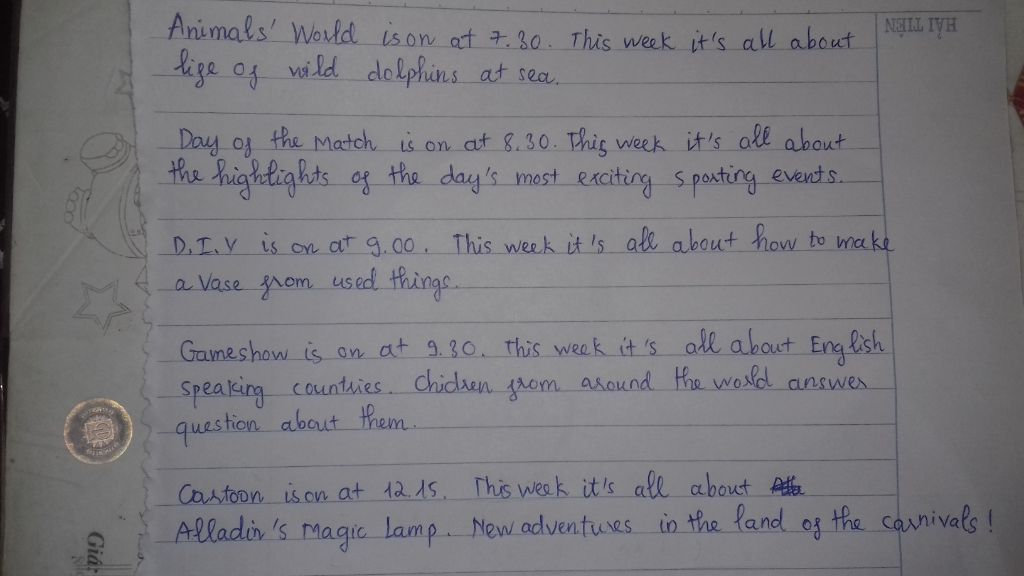 HẢI TIẾN
Animals' World is on at 7.30. This week it's all about
life of wild dolphins at sea.
Day of the Match is on at 8.30. This week it's all about
the highlights of the day's most exciting sporting events.
D.I.Y is on at 9.00. This week it's all about how to make
a vase from used things.
Gameshow is on at 9.30. This week it's all about English
speaking countries. Chidren from around the world answer
question about them.
Cartoon is on at 12.15. This week it's all about
Alladin's Magic Lamp. New adventures in the land of the carnivals!
Giá: